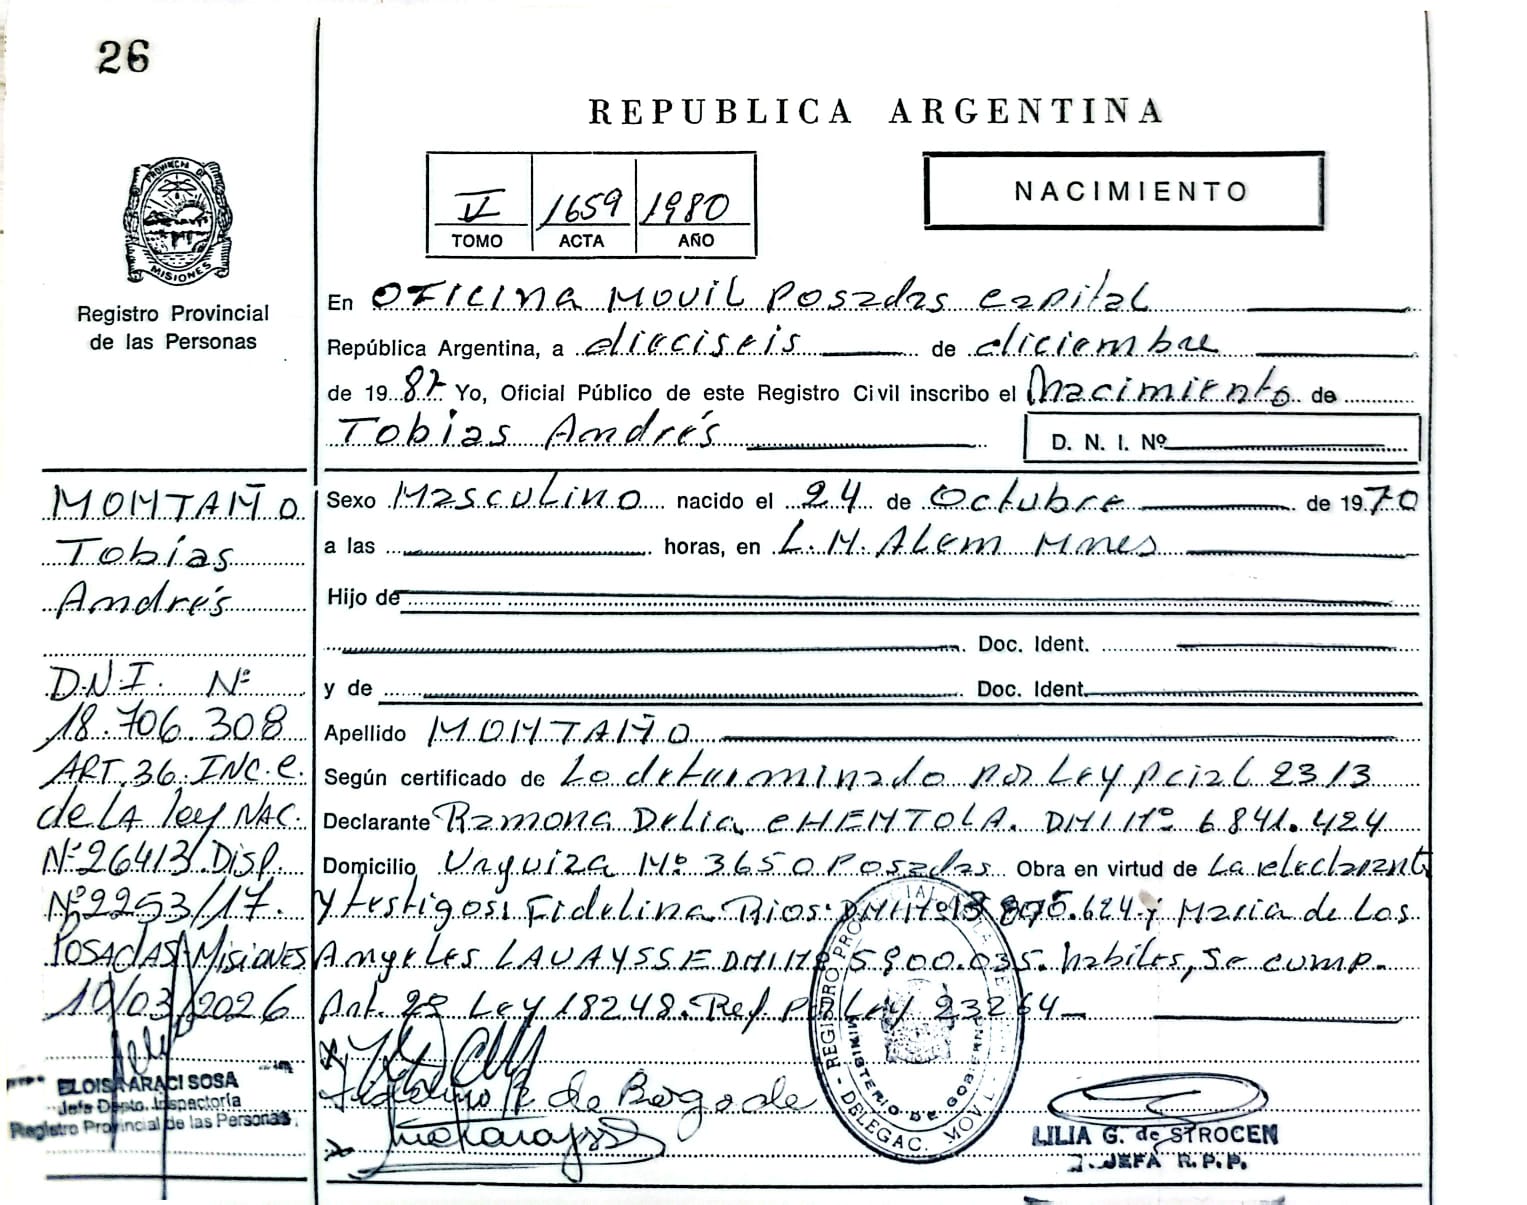 26
REPUBLICA ARGENTINA
V 1659 1980
TOMO ACTA AÑO
NACIMIENTO
PROVINCIA DE MISIONES
Registro Provincial
de las Personas
En OFICINA MOVIL Posadas capital
República Argentina, a dieciseis de diciembre
de 19 87 Yo, Oficial Público de este Registro Civil inscribo el Nacimiento de
Tobias Andrés
D. N. I. Nº
MONTAÑO
Tobías
Andrés
D.N.I. Nº
18.706.308
ART. 36 INC. e.
de LA ley NAC.
Nº 26413 Disp.
Nº 2253/17.
POSADAS Misiones
10/03/2026
ELOISA ARACI SOSA
Jefa Dpto. Inspectoría
Registro Provincial de las Personas
Sexo Masculino nacido el 24 de Octubre de 1970
a las horas, en L.N. Alem Mnes
Hijo de
Doc. Ident.
y de Doc. Ident.
Apellido MONTAÑO
Según certificado de Lo determinado por Ley pcial 2313
Declarante Ramona Delia CHENTOLA. DNI Nº 6841.424
Domicilio Urquiza Nº 3650 Posadas Obra en virtud de La declarante
y testigos: Fidelina Rios DNI Nº .624 y Maria de Los
Angeles LAVAYSSE DNI Nº 5900.035. habiles, Se cump.
Art. 2º Ley 18248. Ref. por Ley 23264
de Bogado
REGISTRO PROVINCIAL DE LAS
MINISTERIO DE GOBIERNO
DELEGAC. MOVIL
LILIA G. de STROCEN
JEFA R.P.P.